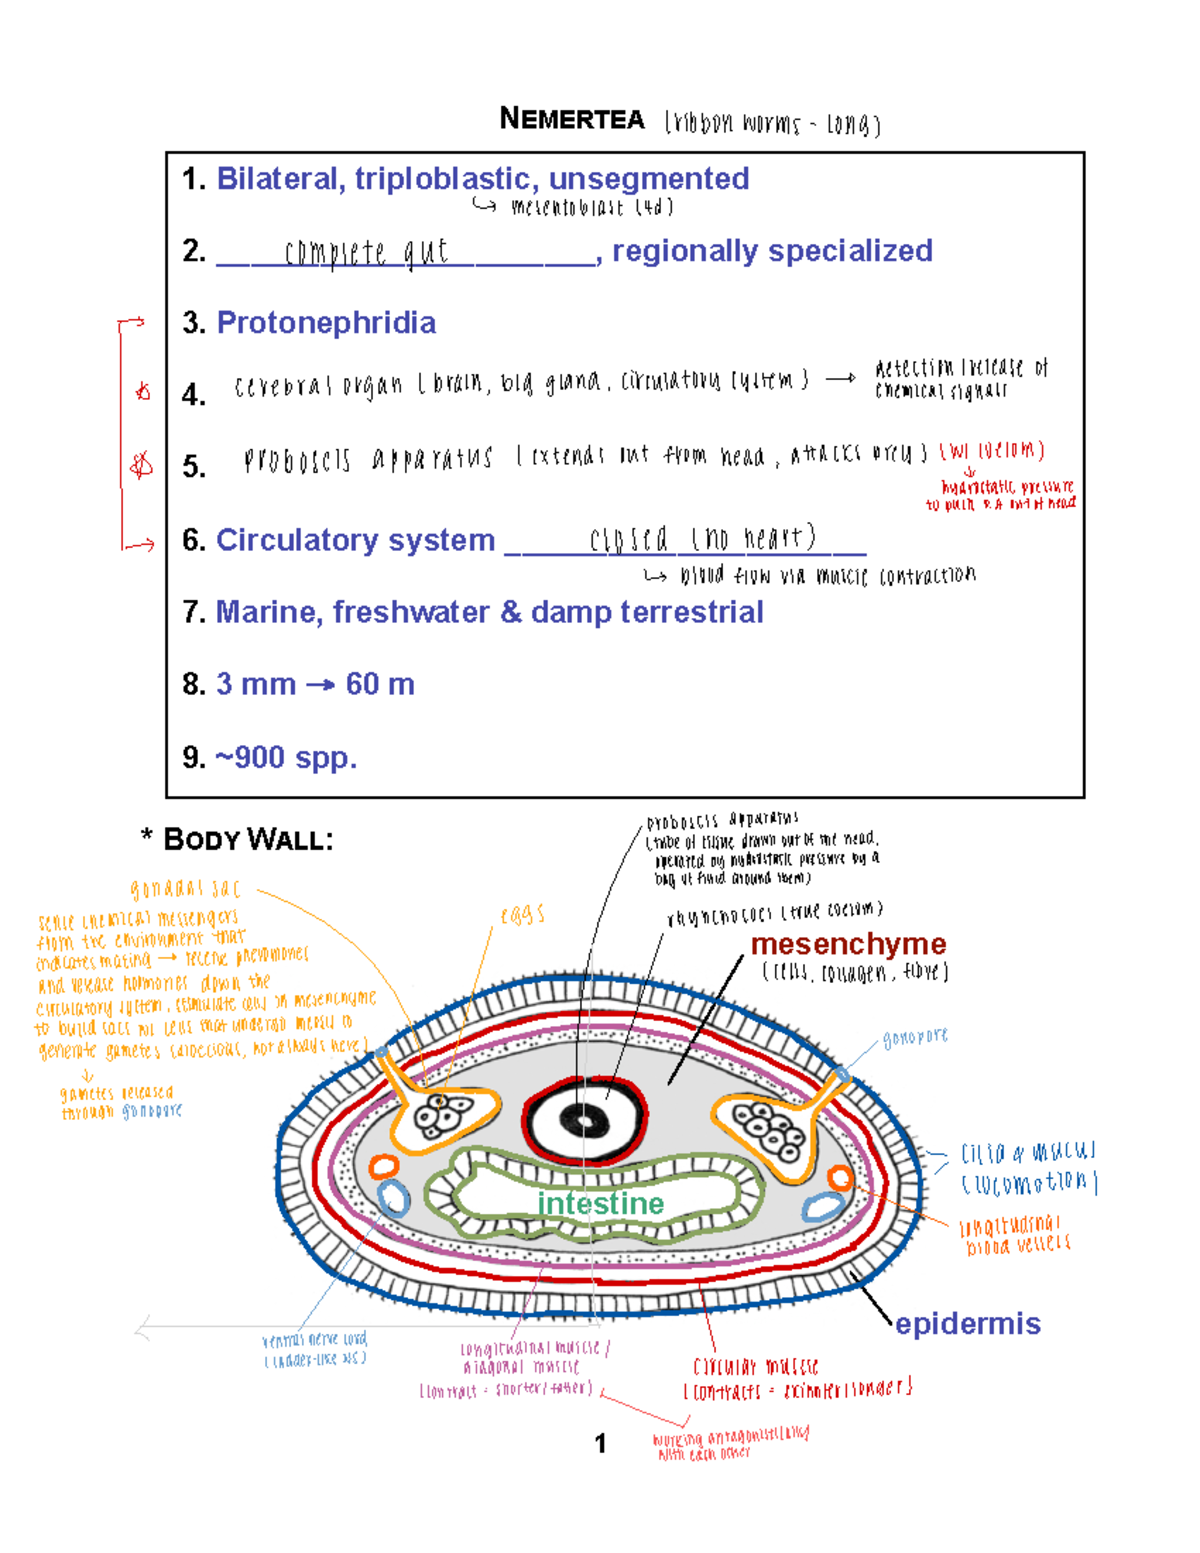 NEMERTEA (ribbon worms - long)
1. Bilateral, triploblastic, unsegmented
↳ mesentoblast (4d)
2. complete gut, regionally specialized
3. Protonephridia
4. cerebral organ (brain, big gland, circulatory system) → detection/release of
chemical signals
5. proboscis apparatus (extends out from head, attacks prey) (w/ coelom)
hydrostatic pressure
to push P.A out of head
6. Circulatory system closed (no heart)
↳ blood flow via muscle contraction
7. Marine, freshwater & damp terrestrial
8. 3 mm → 60 m
9. ~900 spp.
* BODY WALL:
proboscis apparatus
(tube of tissue drawn out of the head,
operated by hydrostatic pressure by a
bag of fluid around them)
rhynchocoel (true coelom)
mesenchyme
(cells, collagen, fibre)
gonadal sac
sense chemical messengers
from the environment that
indicates mating → receive pheromones
and release hormones down the
circulatory system, stimulate cells in mesenchyme
to build sacs w/ cells that undergo meiosis to
generate gametes (dioecious, not always here)
↓
gametes released
through gonopore
eggs
gonopore
cilia & mucus
(locomotion)
longitudinal
blood vessels
intestine
epidermis
ventral nerve cord
(ladder-like NS)
longitudinal muscle/
diagonal muscle
(contract = shorter/fatter)
circular muscle
(contracts = skinnier/longer)
working antagonistically
with each other
1